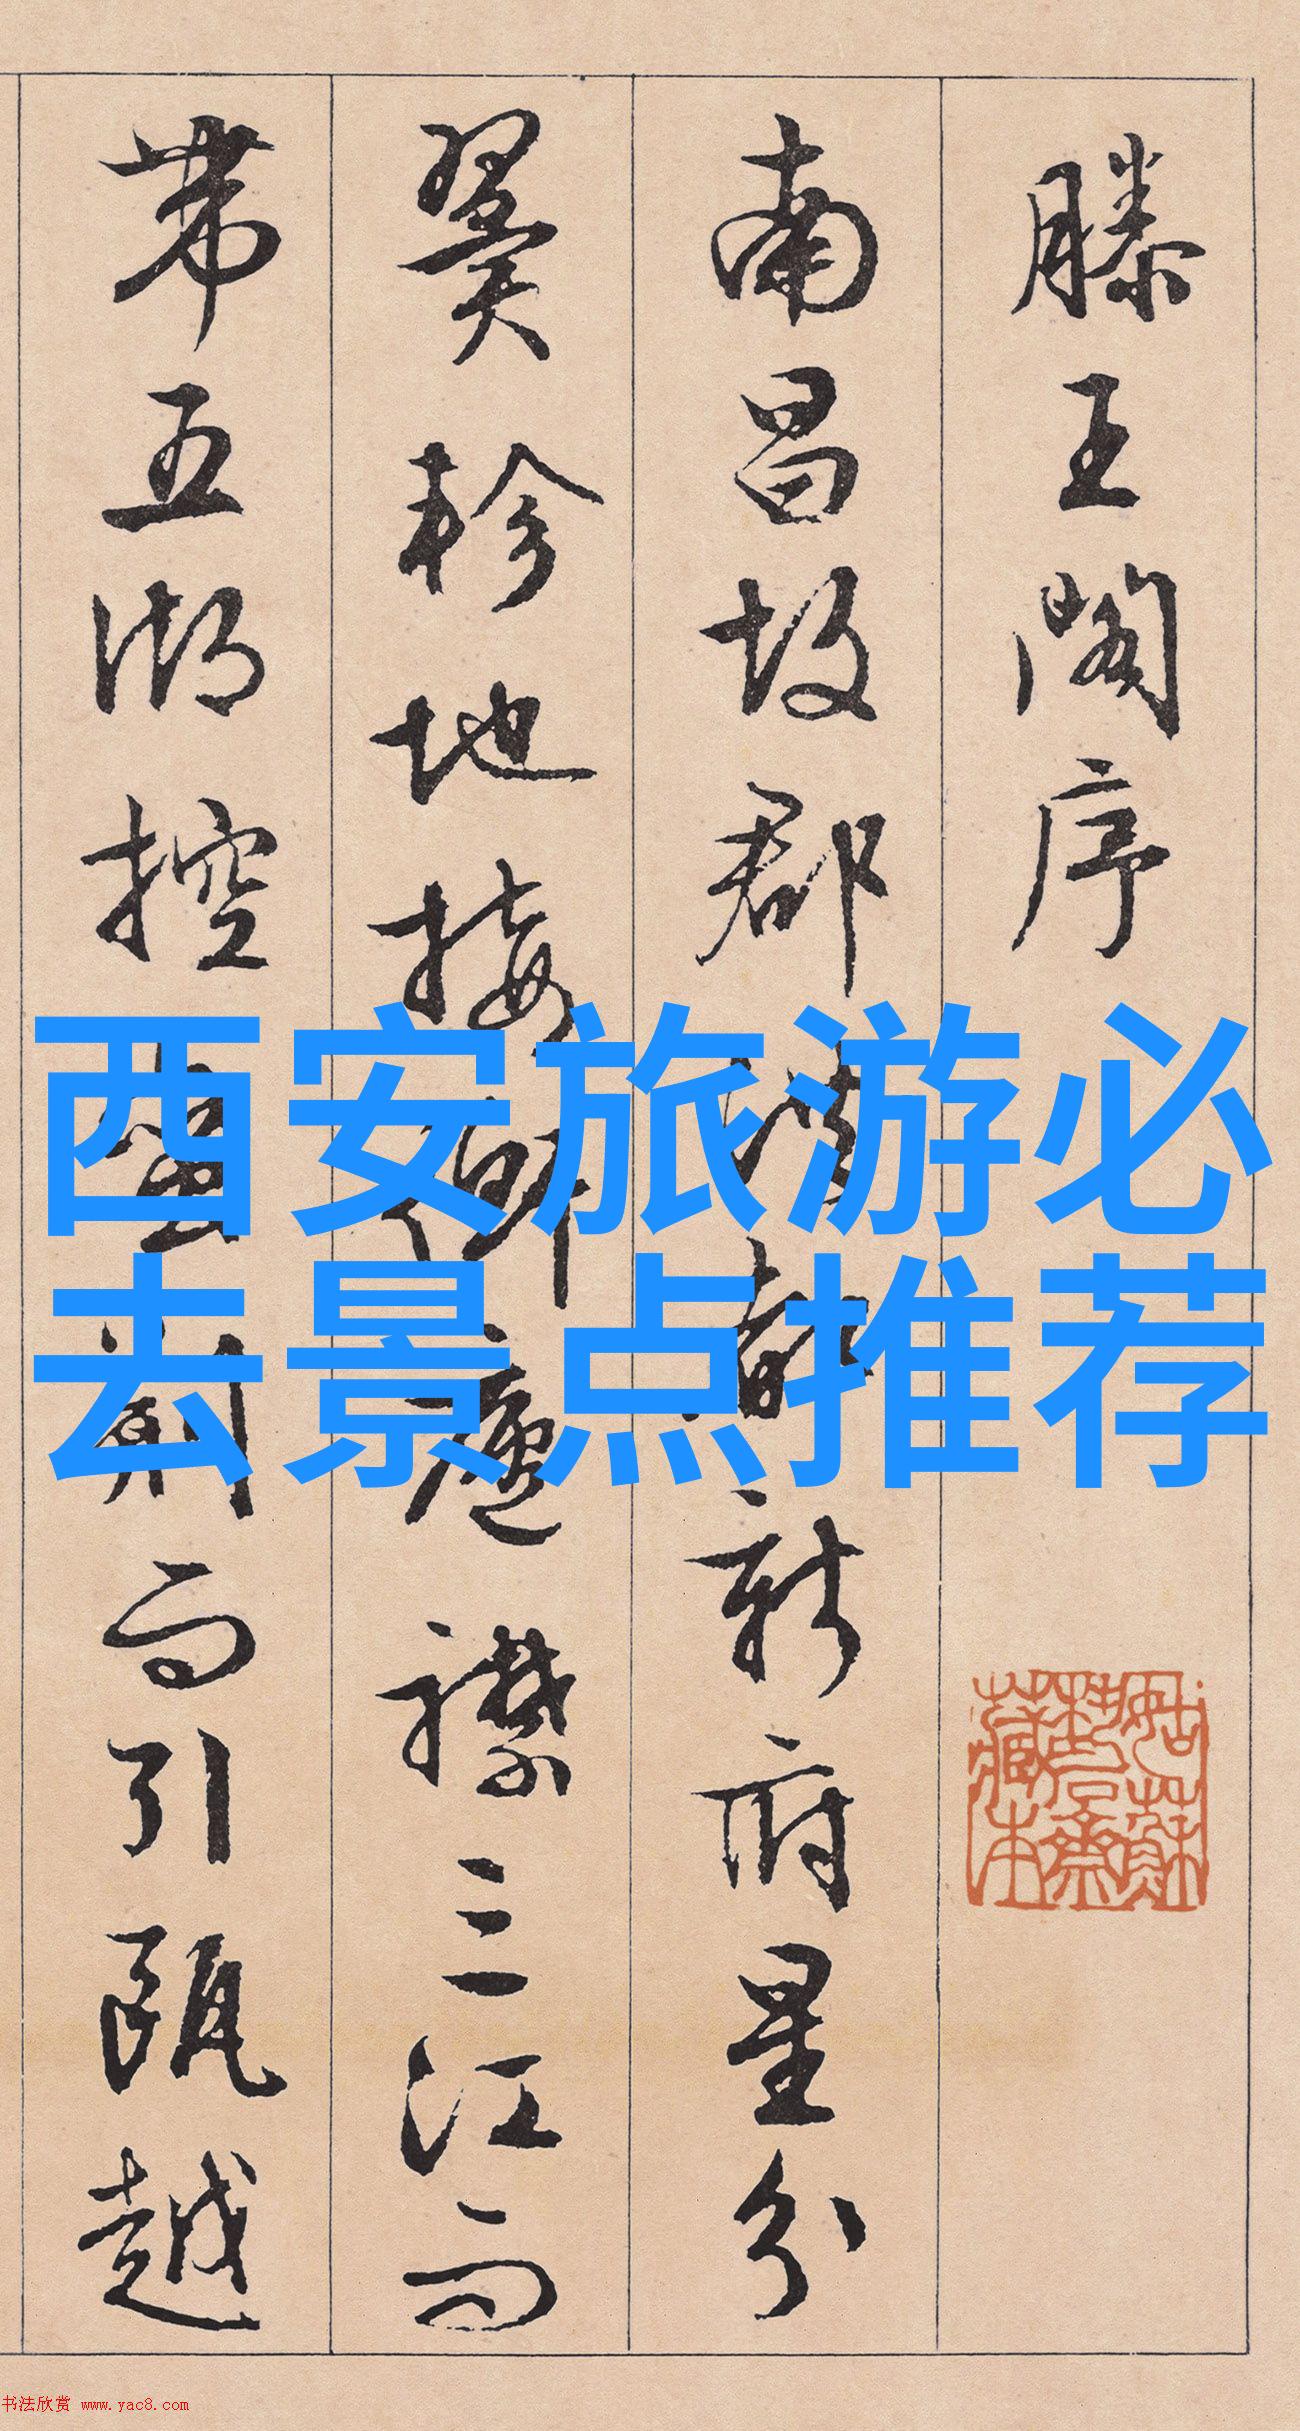 滕王閣序
南昌故郡洪都新府星分
翼軫地接衡廬襟三江而
帶五湖控蠻荆而引甌越
西安旅游必
去景点推荐
姑蘇
藏本
书法欣赏 www.yac8.com